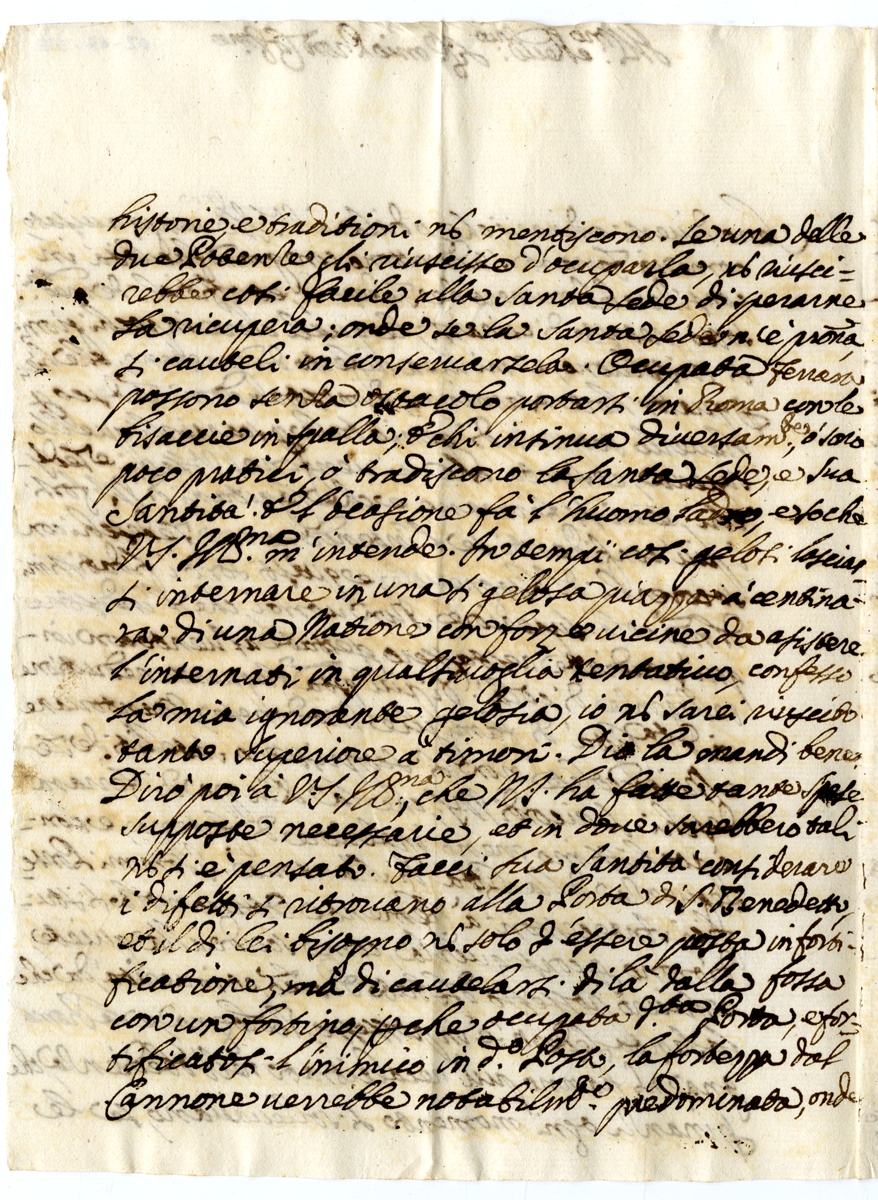 historie, e traditioni nõ mentiscono. Se una delle
due Potenze gli riuscisse d'ocuparla, nõ riusci=
rebbe così facile alla Santa Sede di sperarne
la ricupera; onde se la Santa Sede n'è
si cauteli in conservarsela. Ocupata Ferrara
possono senza ostacolo portarsi in Roma con le
bisaccie in spalla, e chi insinua diversam.te, ò sono
poco pratici, ò tradiscono la Santa Sede, e Sua
Santità. L'ocasione fà l'huomo ladro, e so che
V.S. Ill.ma m'intende. In tempi così gelosi lasciar=
si internare in una sì gelosa piazza à centina=
ra di una Natione con forze vicine da asistere
l'internati in qualsivoglia tentativo, confesso
la mia ignorante gelosia, io nõ sarei riuscito
tanto superiore à timori. Dio la mandi bene.
Dirò poi à V.S. Ill.ma, che N.S. hà fatte tante spese
supposte necessarie, et in dove sarebbero tali
nõ si è pensato. Facci Sua Santità considerare
i difetti si ritrovano alla Porta di S. Benedetto,
et il di lei bisogno nõ solo d'essere posta in forti=
ficatione, mà di cautelarsi di là dalla fossa
con un fortino, p che ocupata d.ta Porta, e for=
tificatosi l'inimico in d.o Posto, la fortezza dal
Cannone verrebbe notabilm.te predominata, onde